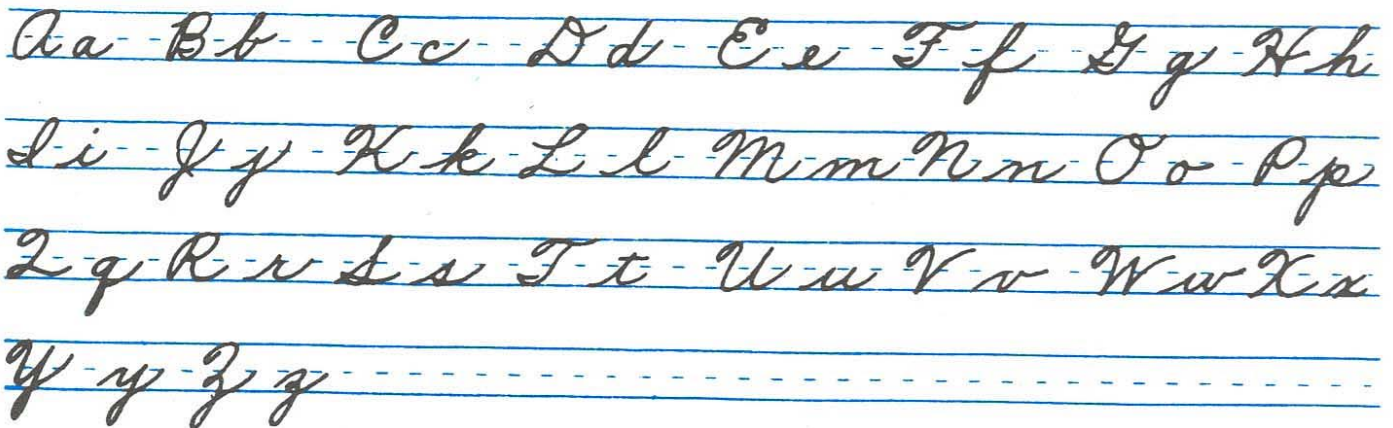 Aa Bb Cc Dd Ee Ff Gg Hh
Ii Jj Kk Ll Mm Nn Oo Pp
Qq Rr Ss Tt Uu Vv Ww Xx
Yy Zz